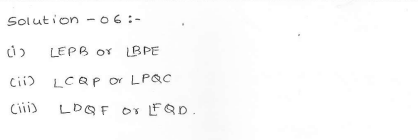 Solution - 06 :-
(i) ∠EPB or ∠BPE
(ii) ∠CQP or ∠PQC
(iii) ∠DQF or ∠FQD.